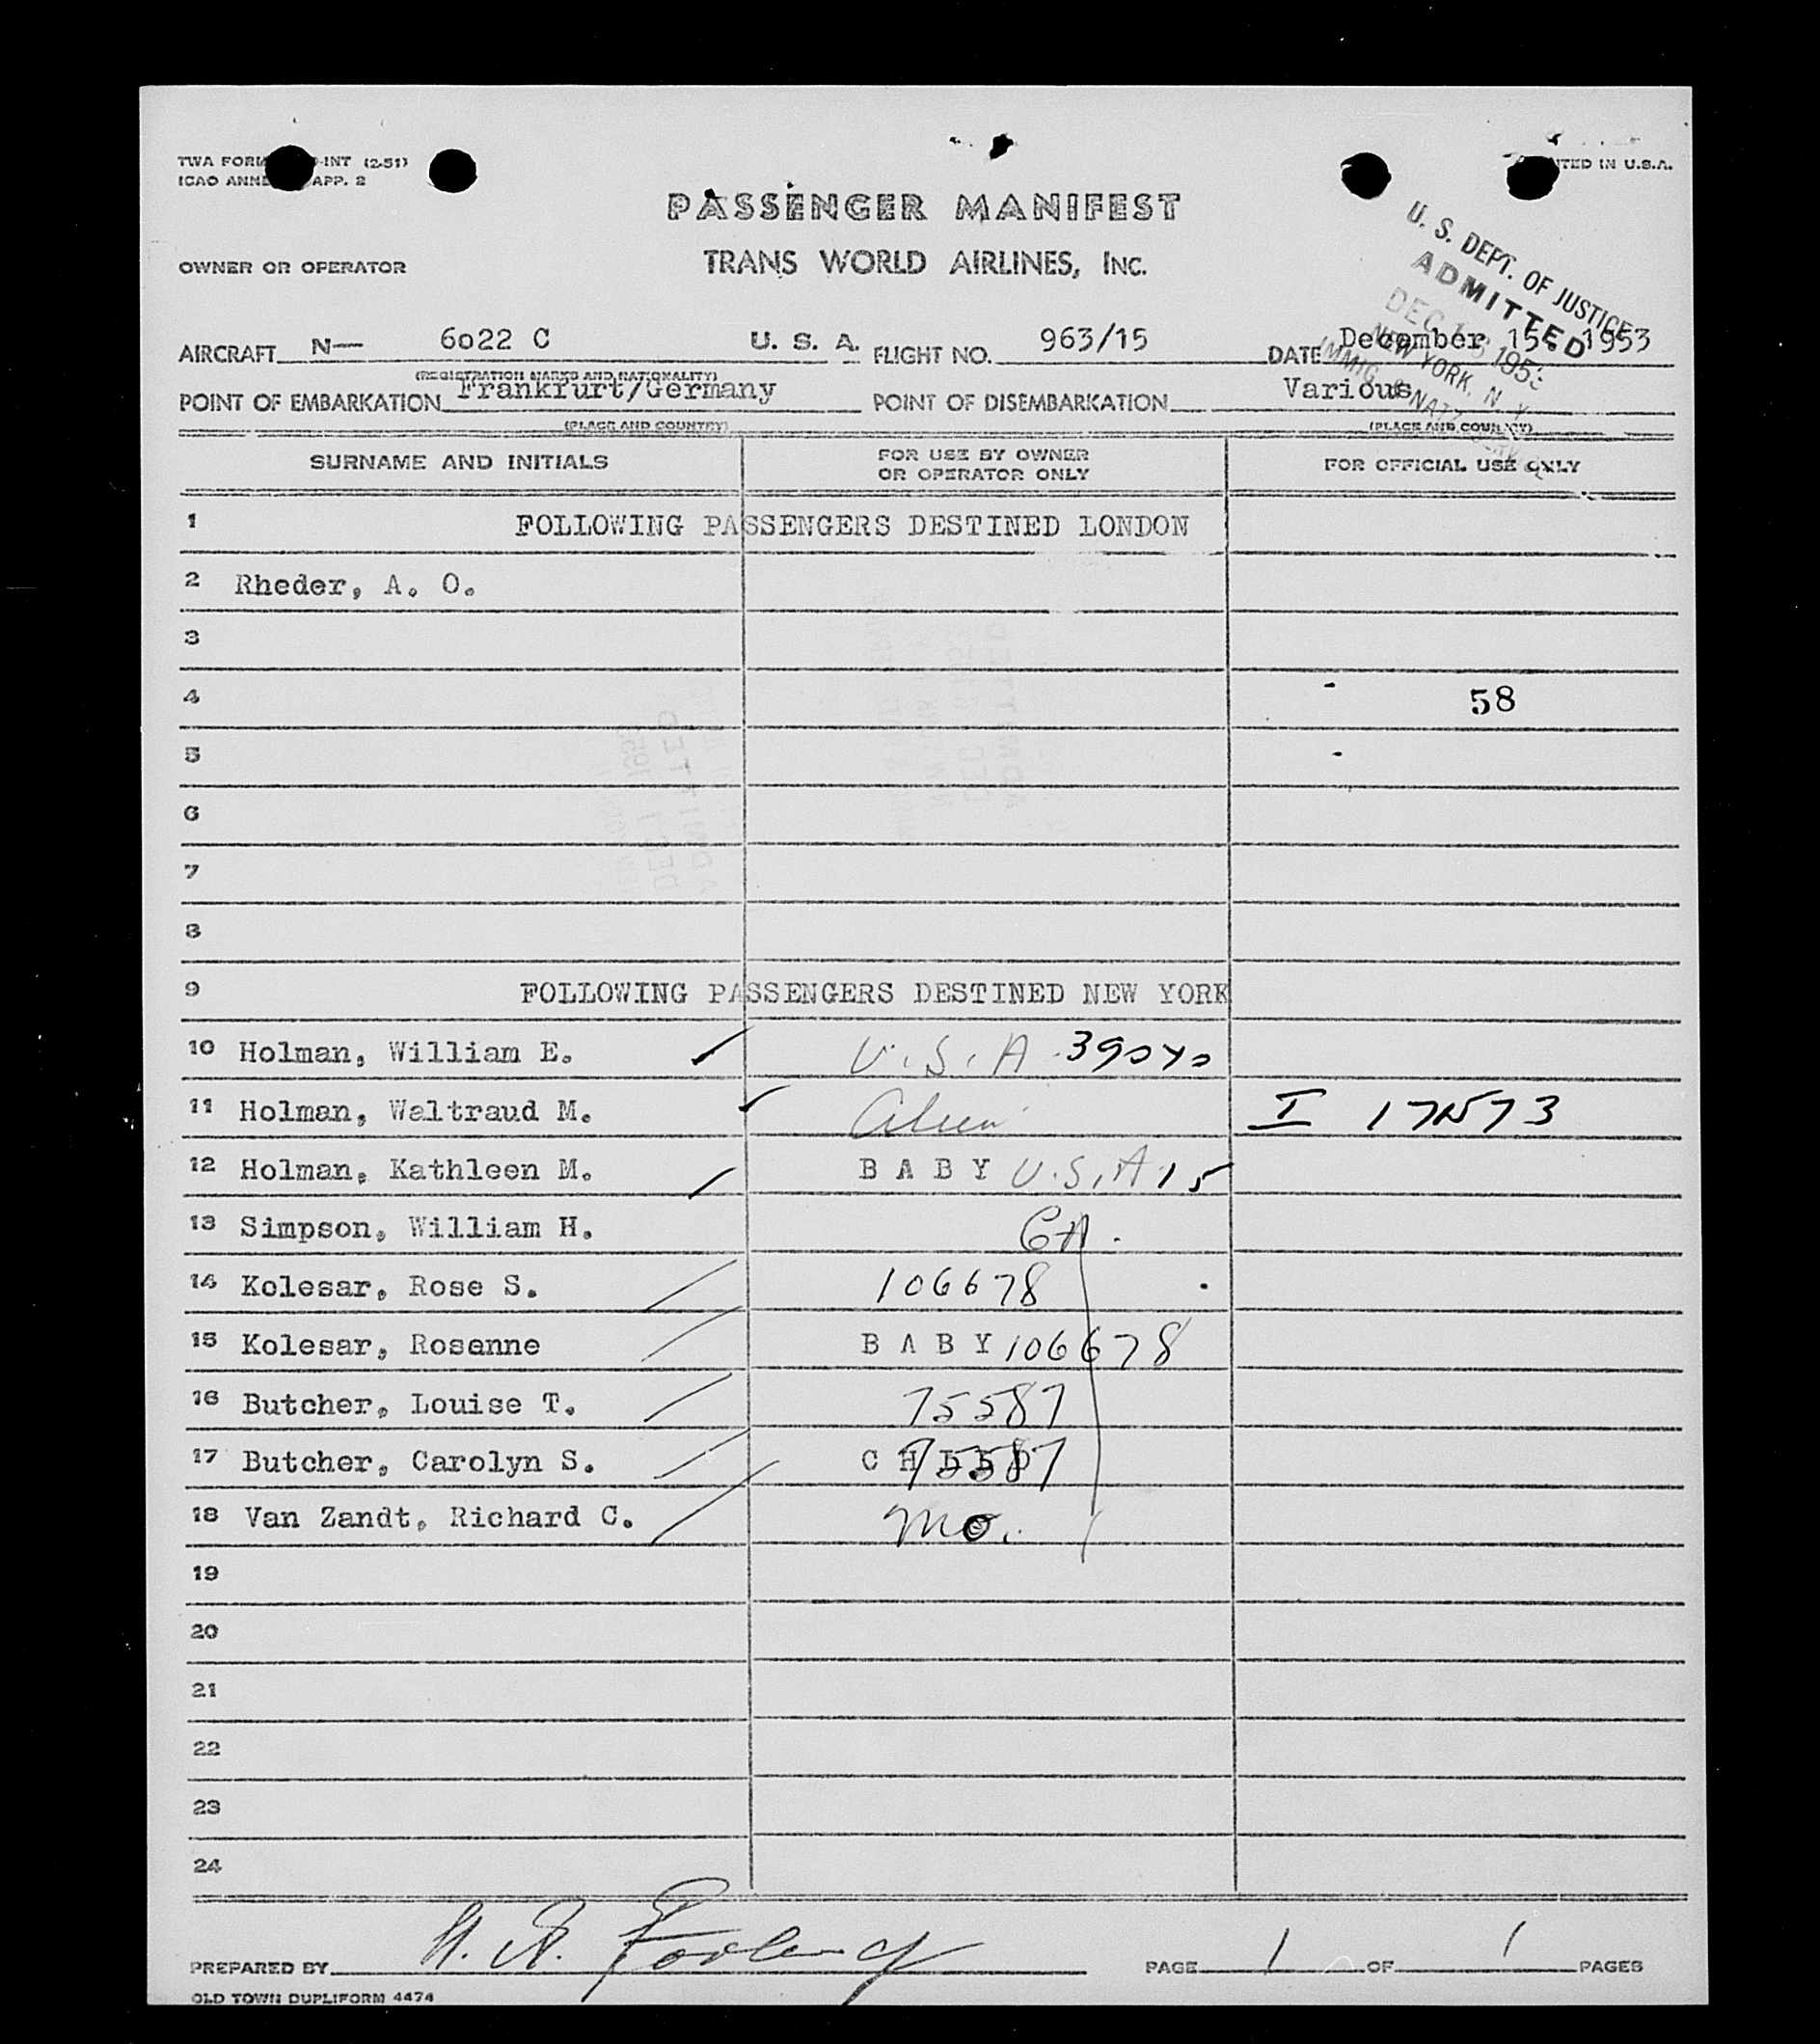 TWA FORM -INT (2-51)
ICAO ANNE APP. 2
TED IN U.S.A.
PASSENGER MANIFEST
OWNER OR OPERATOR
TRANS WORLD AIRLINES, INC.
U. S. DEPT. OF JUSTICE
ADMITTED
DEC 16 1953
NEW YORK, N. Y.
IMMIG. & NATZ. SERVICE
AIRCRAFT N— 6022 C U. S. A. FLIGHT NO. 963/15 DATE December 15, 1953
(REGISTRATION MARKS AND NATIONALITY)
POINT OF EMBARKATION Frankfurt/Germany POINT OF DISEMBARKATION Various
(PLACE AND COUNTRY) (PLACE AND COUNTRY)
SURNAME AND INITIALS FOR USE BY OWNER OR OPERATOR ONLY FOR OFFICIAL USE ONLY
1 FOLLOWING PASSENGERS DESTINED LONDON
2 Rheder, A. O.
3
4 58
5
6
7
8
9 FOLLOWING PASSENGERS DESTINED NEW YORK
10 Holman, William E. U.S.A
11 Holman, Waltraud M. Alien I
12 Holman, Kathleen M. B A B Y U.S.A 15
13 Simpson, William H.
14 Kolesar, Rose S. 106678
15 Kolesar, Rosanne B A B Y 106678
16 Butcher, Louise T. 75587
17 Butcher, Carolyn S. C H I L D 75587
18 Van Zandt, Richard C. Mo.
19
20
21
22
23
24
PREPARED BY PAGE 1 OF 1 PAGES
OLD TOWN DUPLIFORM 4474